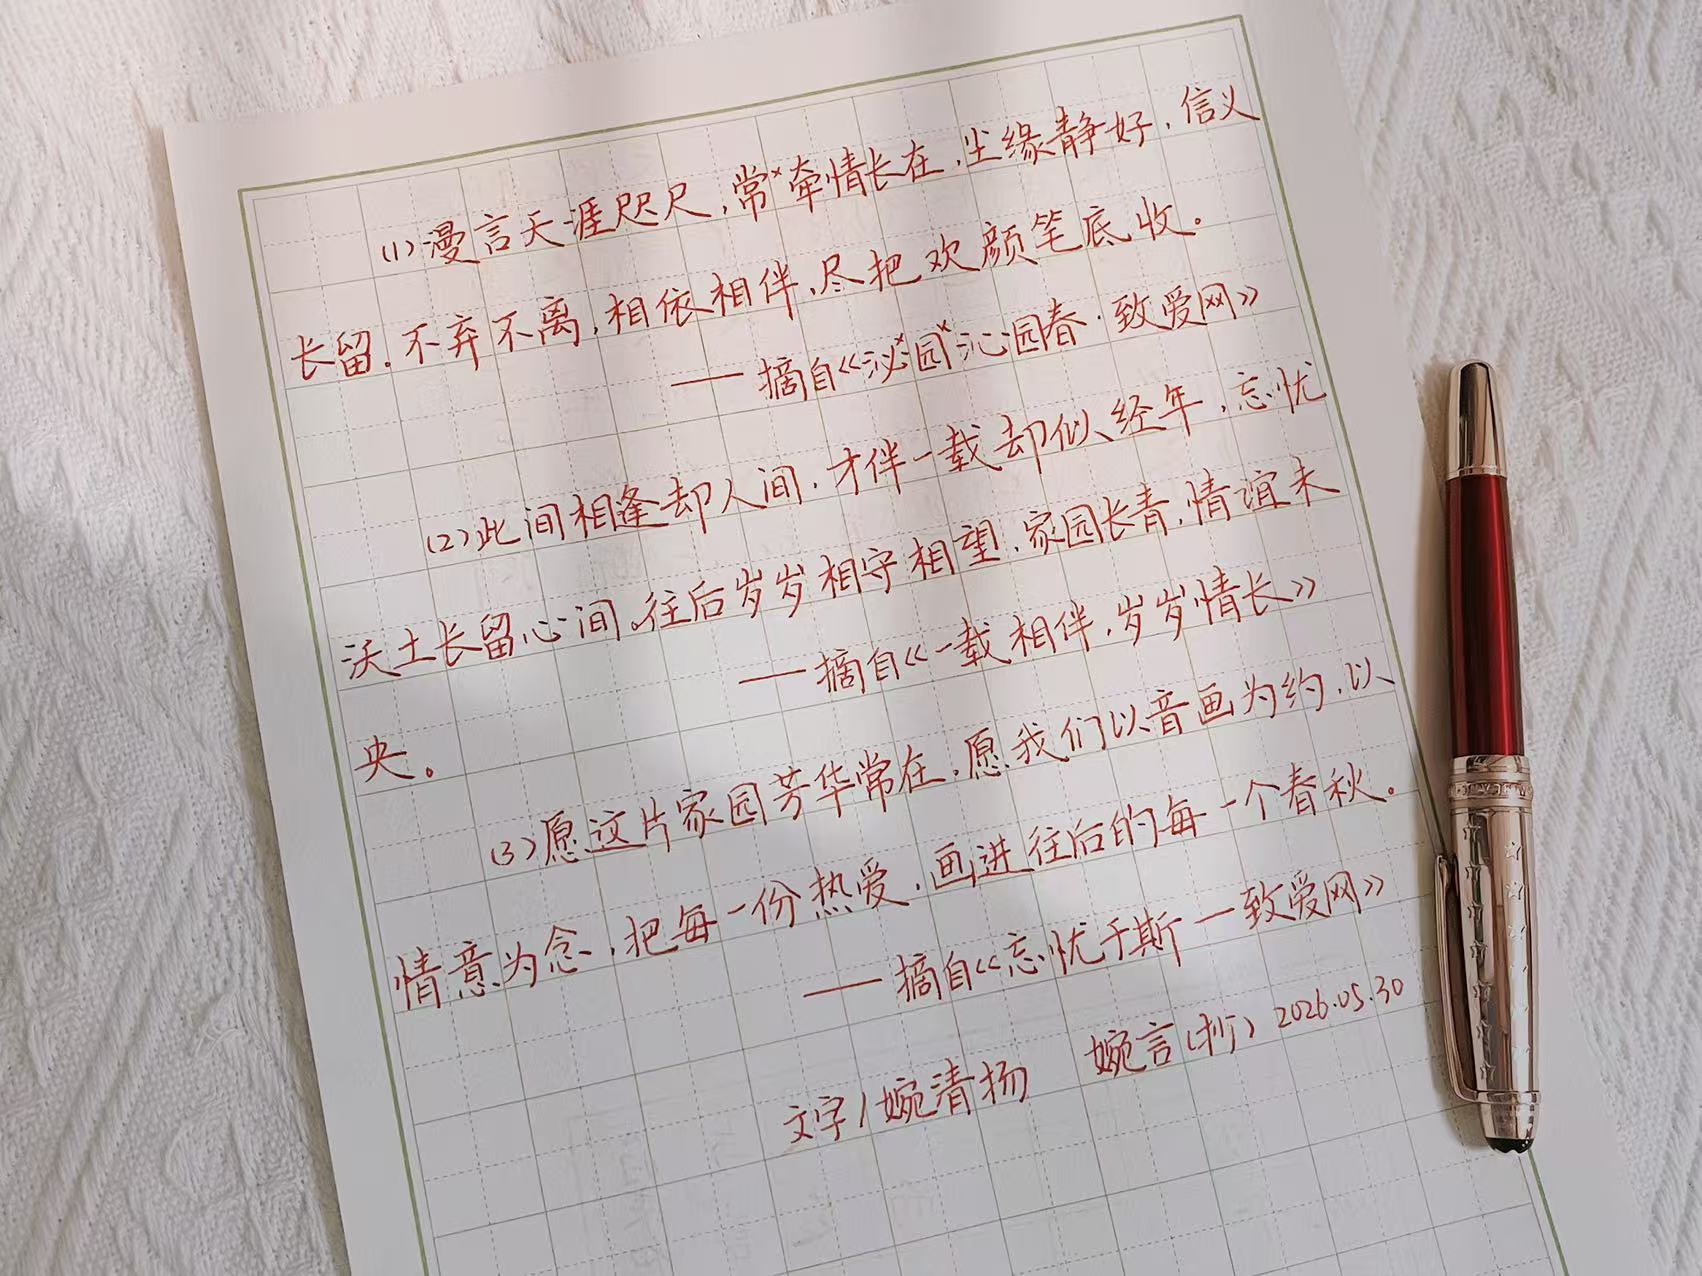 (1)漫言天涯咫尺，常牵情长在，尘缘静好，信义
长留，不弃不离，相依相伴，尽把欢颜笔底收。
——摘自《泌园沁园春·致爱网》
(2)此间相逢却人间，才伴一载却似经年，忘忧
沃土长留心间。往后岁岁相守相望，家园长青，情谊未
——摘自《一载相伴，岁岁情长》
央。
(3)愿这片家园芳华常在，愿我们以音画为约，以
情意为念，把每一份热爱，画进往后的每一个春秋。
——摘自《忘忧于斯一致爱网》
文字/婉清扬 婉言(抄) 2026.05.30